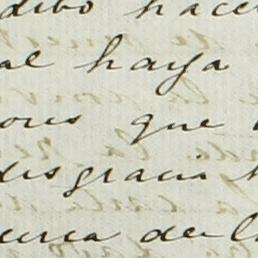 debo hacer
al haya
ores que
desgracia
cerca de